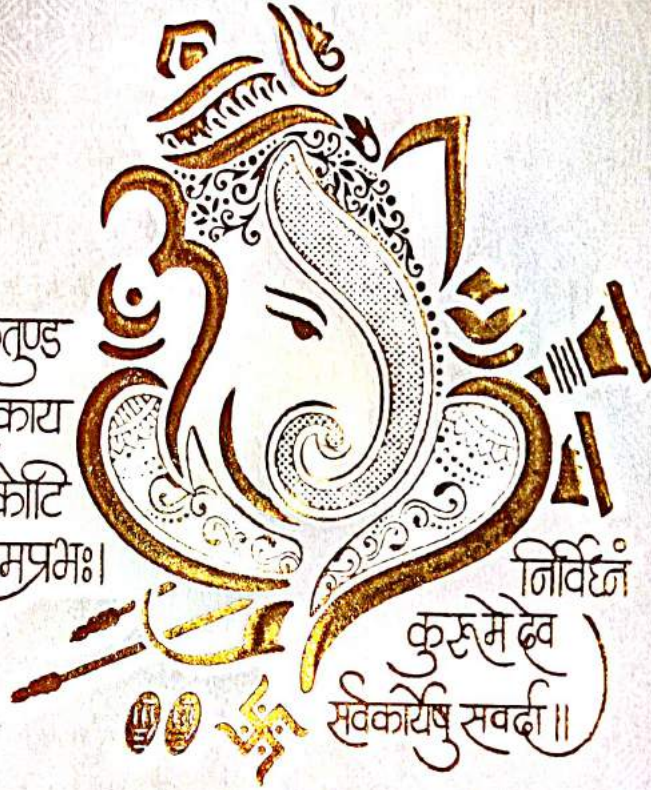 तुण्ड
काय
कोटि
मप्रभः।
निर्विघ्नं
कुरूमे देव
सर्वकार्येषु सवर्दा॥